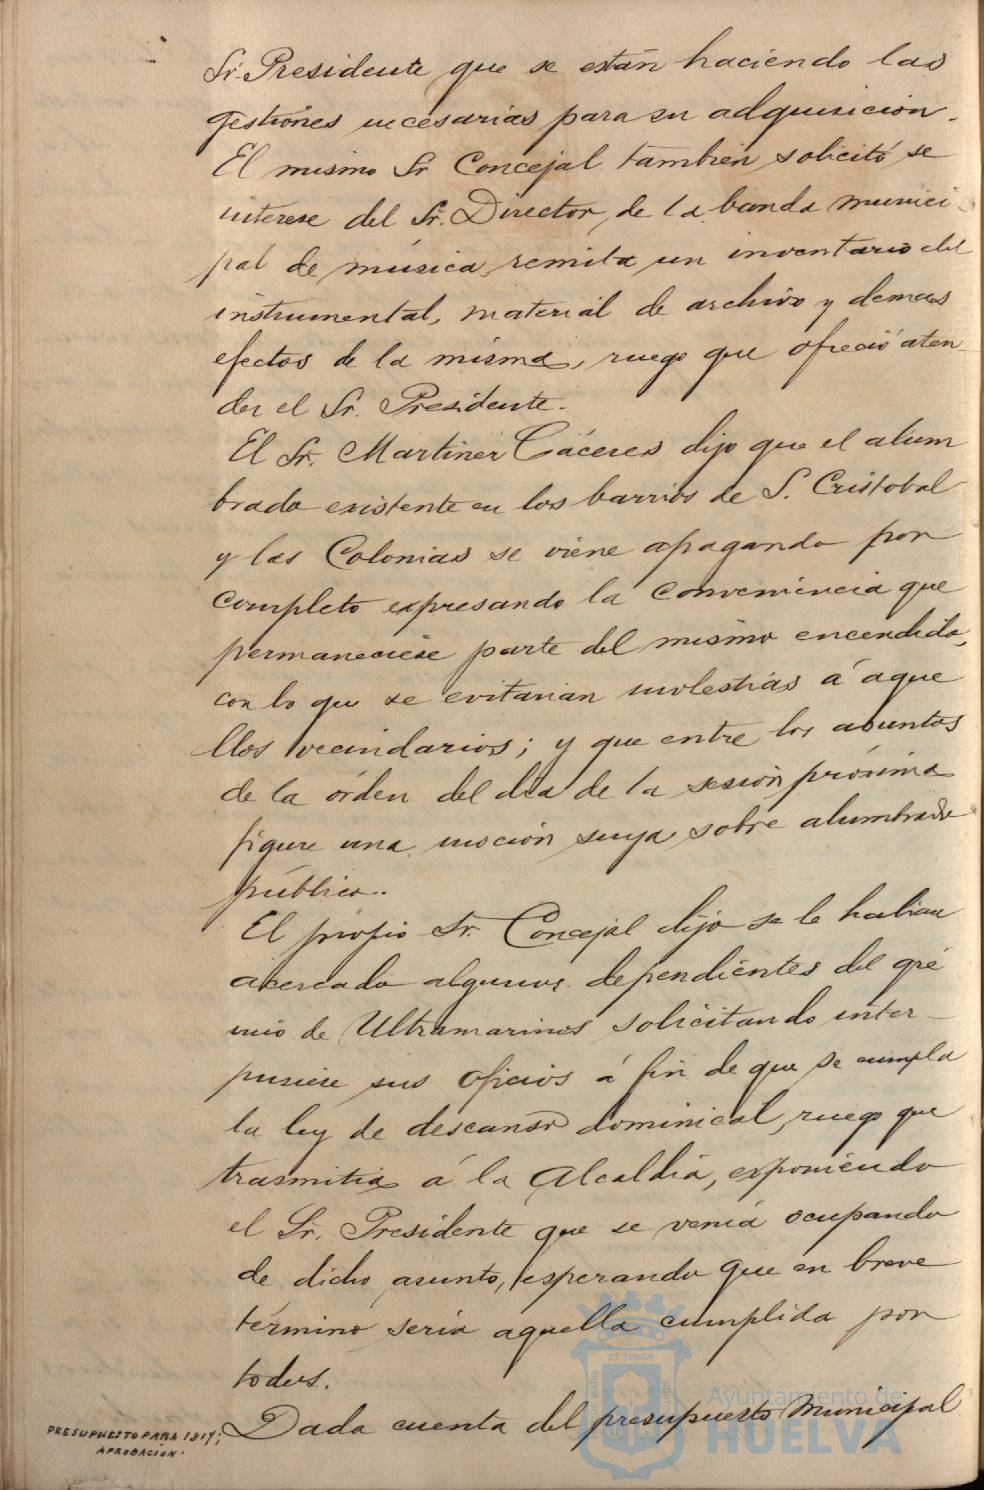 Sr. Presidente que se están haciendo las
gestiones necesarias para su adquisición.
El mismo Sr Concejal tambien solicitó se
interese del Sr. Director, de la banda munici-
pal de música, remita un inventario del
instrumental, material de archivo y demas
efectos de la misma, ruego que ofreció aten-
der el Sr. Presidente.
El Sr. Martinez Cáceres dijo que el alum
brado existente en los barrios de S. Cristobal
y las Colonias se viene apagando por
completo expresando la conveniencia que
permaneciese parte del mismo encendido,
con lo que se evitarian molestias á aque
llos vecindarios; y que entre los asuntos
de la órden del dia de la sesión próxima
figure una moción suya sobre alumbrado
público..
El propio Sr. Concejal dijo se le habian
acercado algunos dependientes del gré
mio de Ultramarinos solicitando inter-
pusiese sus oficios á fin de que se cumpla
la ley de descanso dominical, ruego que
trasmitia á la Alcaldia, exponiendo
el Sr. Presidente que se venia ocupando
de dicho asunto, esperando que en breve
término seria aquella cumplida por
todos.
PRESUPUESTO PARA 1917; Dada cuenta del presupuesto Municipal
APROBACION.
ET TERRAE
Ayuntamiento de
HUELVA